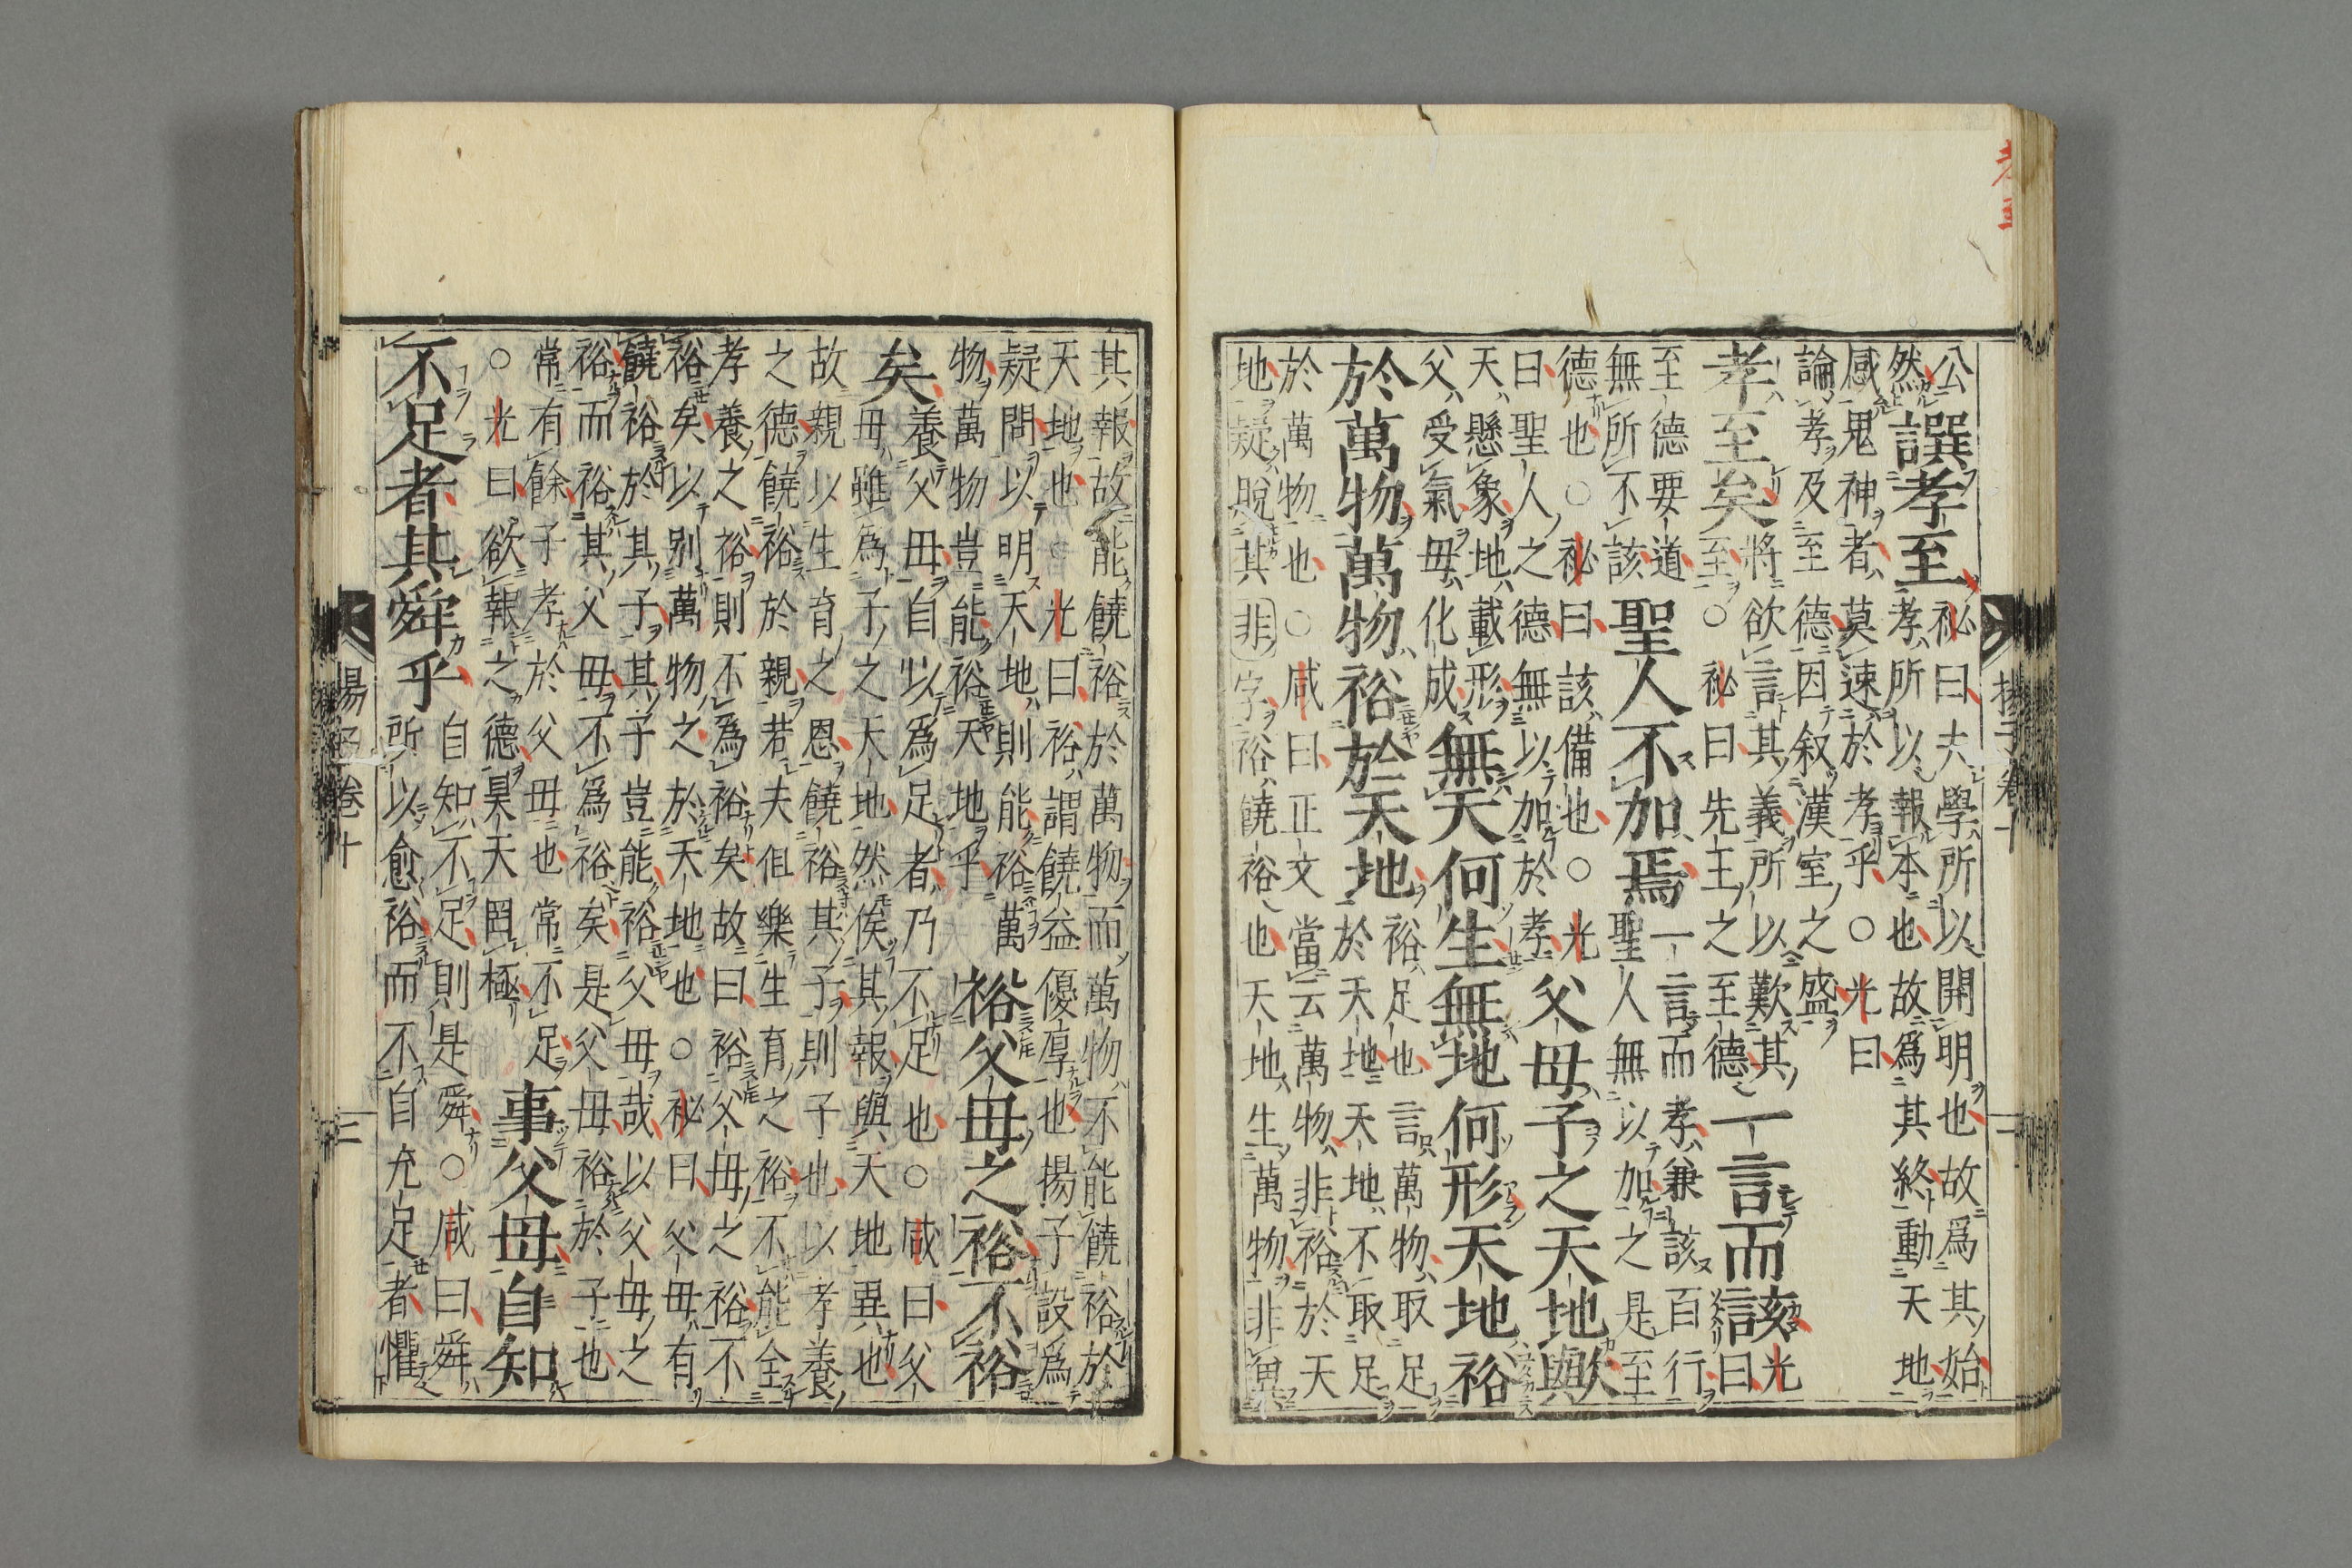 孝至
揚子卷十 二
公
然
譔孝至
祕曰夫學所以開明也故為其始
孝所以報本也故為其終動天地
感鬼神者莫速於孝乎○光曰
論孝及至德因叙漢室之盛
孝至矣
將欲言其義所以歎其
至○祕曰先王之至德
一言而該
光
曰
至德要道
無所不該
聖人不加焉
一言而孝兼該百行
聖人無以加之是至
德也○祕曰該備也○光
曰聖人之德無以加於孝
父母子之天地歟
天懸象地載形
父受氣母化成
無天何生無地何形天地裕
於萬物萬物裕於天地
裕足也言萬物取足
於天地天地不取足
於萬物也○咸曰正文當云萬物非裕於天
地疑脫其非字裕饒裕也天地生萬物非冀
其報故能饒裕於萬物而萬物不能饒裕於
天地也光曰裕謂饒益優厚也揚子設為
疑問以明天地則能裕萬
物萬物豈能裕天地乎
裕父母之裕不裕
矣
養父母自以為足者乃不足也○咸曰父
母雖為子之天地然俟其報與天地異也
故親以生育之恩饒裕其子則子也以孝養
之德饒裕於親若夫但樂生育之裕不能全
孝養之裕則不為裕矣故曰裕父母之裕不
裕矣以別萬物之於天地也○祕曰父母有
饒裕於其子其子豈能裕父母哉以父母之
裕而裕其父母不為裕矣是父母裕於子也
常有餘子孝於父母也常不足
○光曰欲報之德昊天罔極
事父母自知
不足者其舜乎
自知不足則是舜○咸曰舜
所以愈裕而不自充足者懼
揚子卷十 三